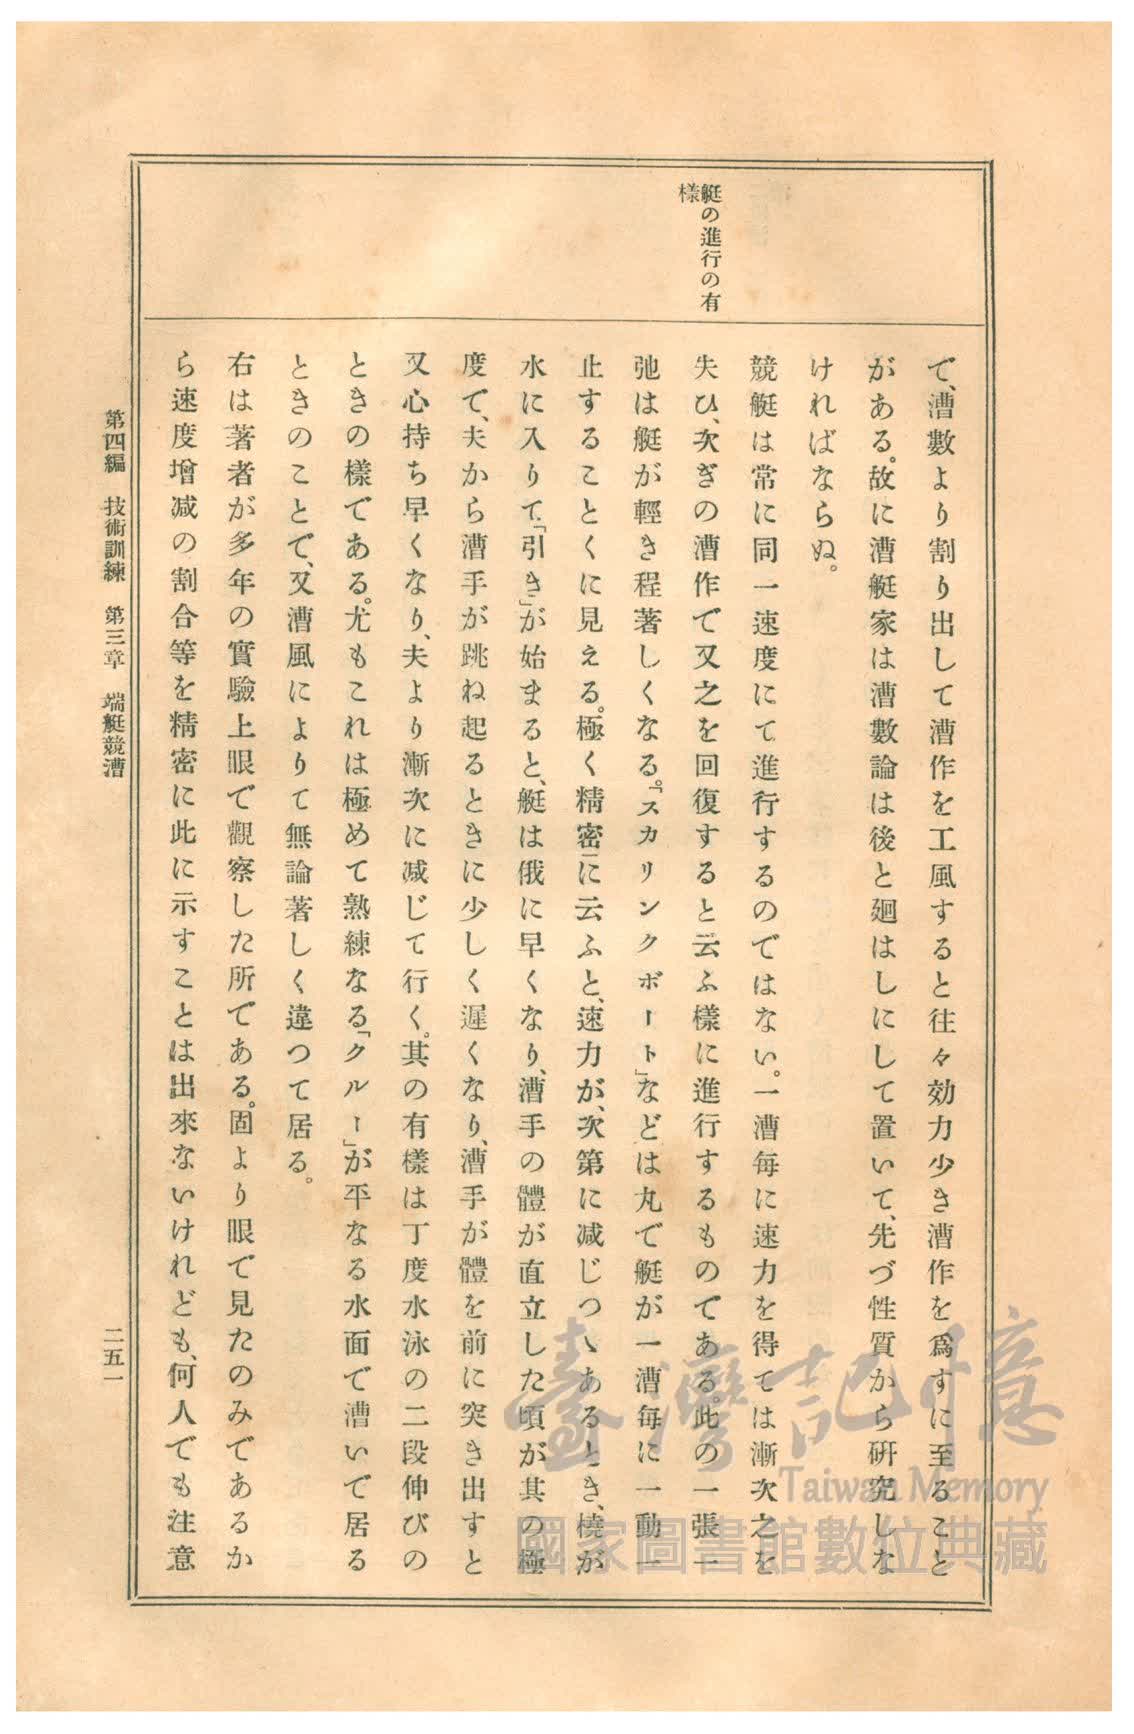 艇の進行の有
樣
で、漕數より割り出して漕作を工風すると往々効力少き漕作を爲すに至ること
がある。故に漕艇家は漕數論は後と廻はしにして置いて、先づ性質から硏究しな
ければならぬ。
競艇は常に同一速度にて進行するのではない。一漕每に速力を得ては漸次之を
失ひ、次ぎの漕作で又之を回復すると云ふ樣に進行するものである。此の一張一
弛は艇が輕き程著しくなる。「スカリンクボート」などは丸で艇が一漕每に一動一
止することくに見える。極く精密に云ふと、速力が、次第に减じつゝあるとき、橈が
水に入りて、「引き」が始まると、艇は俄に早くなり、漕手の體が直立した頃が其の極
度で、夫から漕手が跳ね起るときに少しく遲くなり、漕手が體を前に突き出すと
又心持ち早くなり、夫より漸次に减じて行く。其の有樣は丁度水泳の二段伸びの
ときの樣である。尤もこれは極めて熟練なる「クルー」が平なる水面で漕いで居る
ときのことで、又漕風によりて無論著しく違つて居る。
右は著者が多年の實驗上眼で觀察した所である。固より眼で見たのみであるか
ら速度增减の割合等を精密に此に示すことは出來ないけれども、何人でも注意
第四編　技術訓練　第三章　端艇競漕
二五一
臺灣記憶
Taiwan Memory
國家圖書館數位典藏